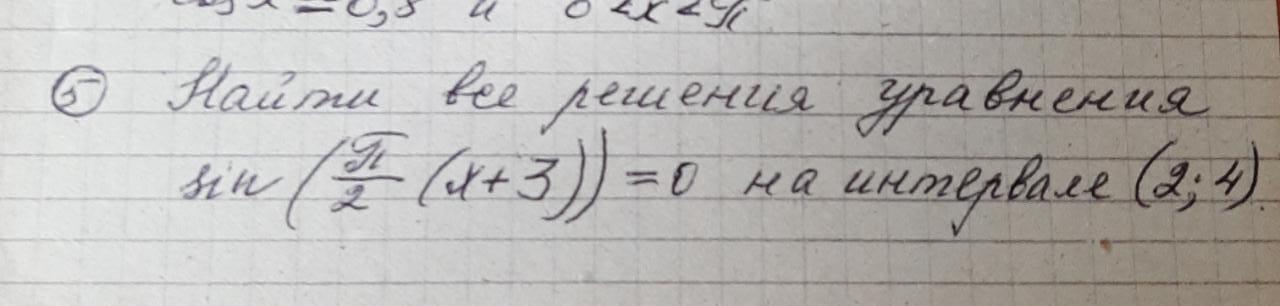 cos x = 0,8 и 0 < x < π
⑤ Найти все решения уравнения
sin (π/2 (x+3)) = 0 на интервале (2; 4).